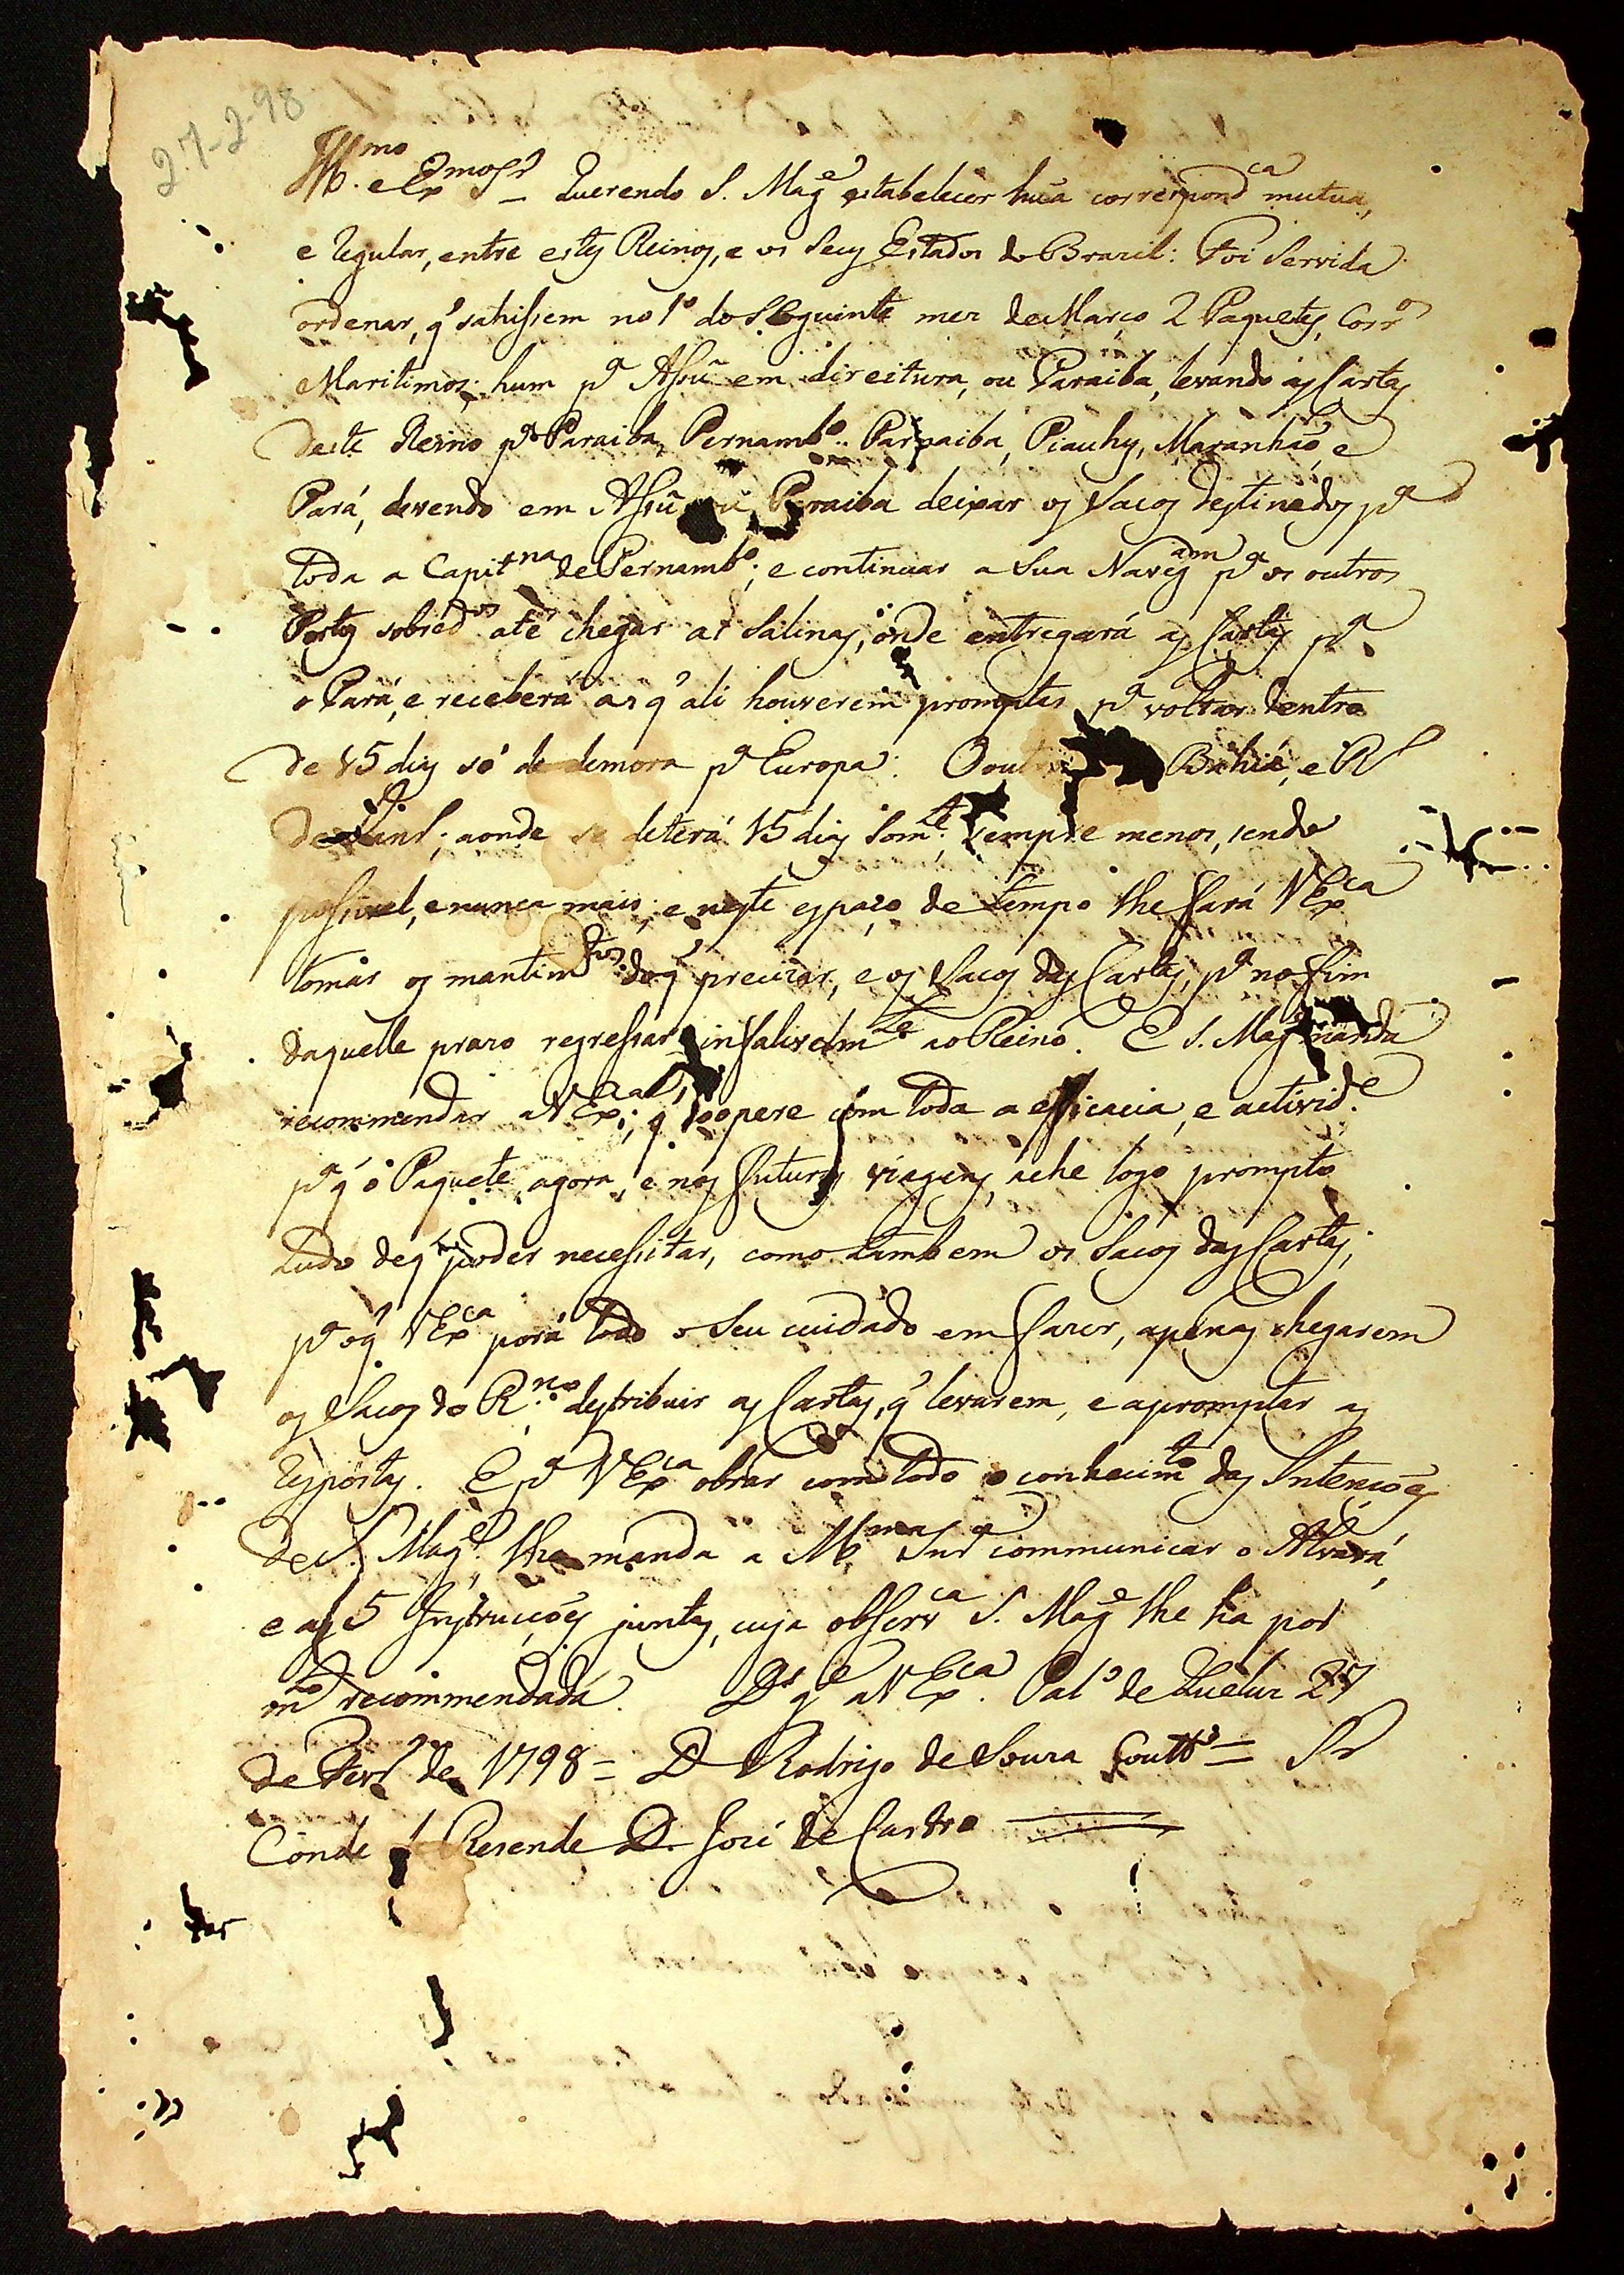 27-2-98
Ill.mo e Ex.mo Sr _ Querendo S. Mag.e estabelecer huã correspond.ca mutua,
e regular, entre estes Reinos, e os seus Estados do Brazil: Foi Servida
ordenar, q' sahissem no 1º do seguinte mez de Março 2 Paquetes, Corr.os
Maritimos; hum p.a Assú em direitura, ou Paraiba, levando as Cartas
deste Reino p.a Paraiba, Pernamb.o Parnaiba, Piauhy, Maranhaõ, e
Pará, devendo em Assú ou Paraiba deixar os Sacos destinados p.a
toda a Capit.na de Pernamb.o; e continuar a sua Naveg.am p.a os outros
Portos sobred.os até chegar as Salinas, onde entregará as Cartas p.a
o Pará, e receberá as q' ali houverem promptas p.a voltar dentro
de 15 dias só de demora p.a Europa. O out Bahia, e R.
de Jan.; aonde se deterá 15 dias Som.te, sempre menos, sendo
possivel, e nunca mais; e neste espaço de tempo lhe fará V Ex.ca
tomar os mantim.tos de q' precizar, e os Sacos das Cartas, p.a no fim
daquelle prazo regressar infalivelm.te ao Reino. E S. Mag.e manda
recommendar a V Ex.ca; q' coopere com toda a efficacia, e activid.e
p.a q' o Paquete, agora, e nas futuras viagens, ache logo prompto
tudo de q' poder necessitar, como tambem os Sacos das Cartas;
p.a o q' V Ex.ca porá todo o seu cuidado em fazer, apenas chegarem
os Sacos do R.no destribuir as Cartas, q' levarem, e apromptar as
respostas. E p.a V Ex.ca obrar com todo o conhecim.to das Intençoẽs
de S. Mag.e, lhe manda a M.ma Snr.a communicar o Alvará,
e as 5 Instrucçoẽs juntas, cuja observ.ca S. Mag.e lhe ha por
m.to recommendada. D.s g.e a V Ex.ca. Pal.o de Queluz 27
de Fevr.o de 1798 = D Rodrigo de Souza Coutt.o = Sr
Conde de Resende D. José de Castro